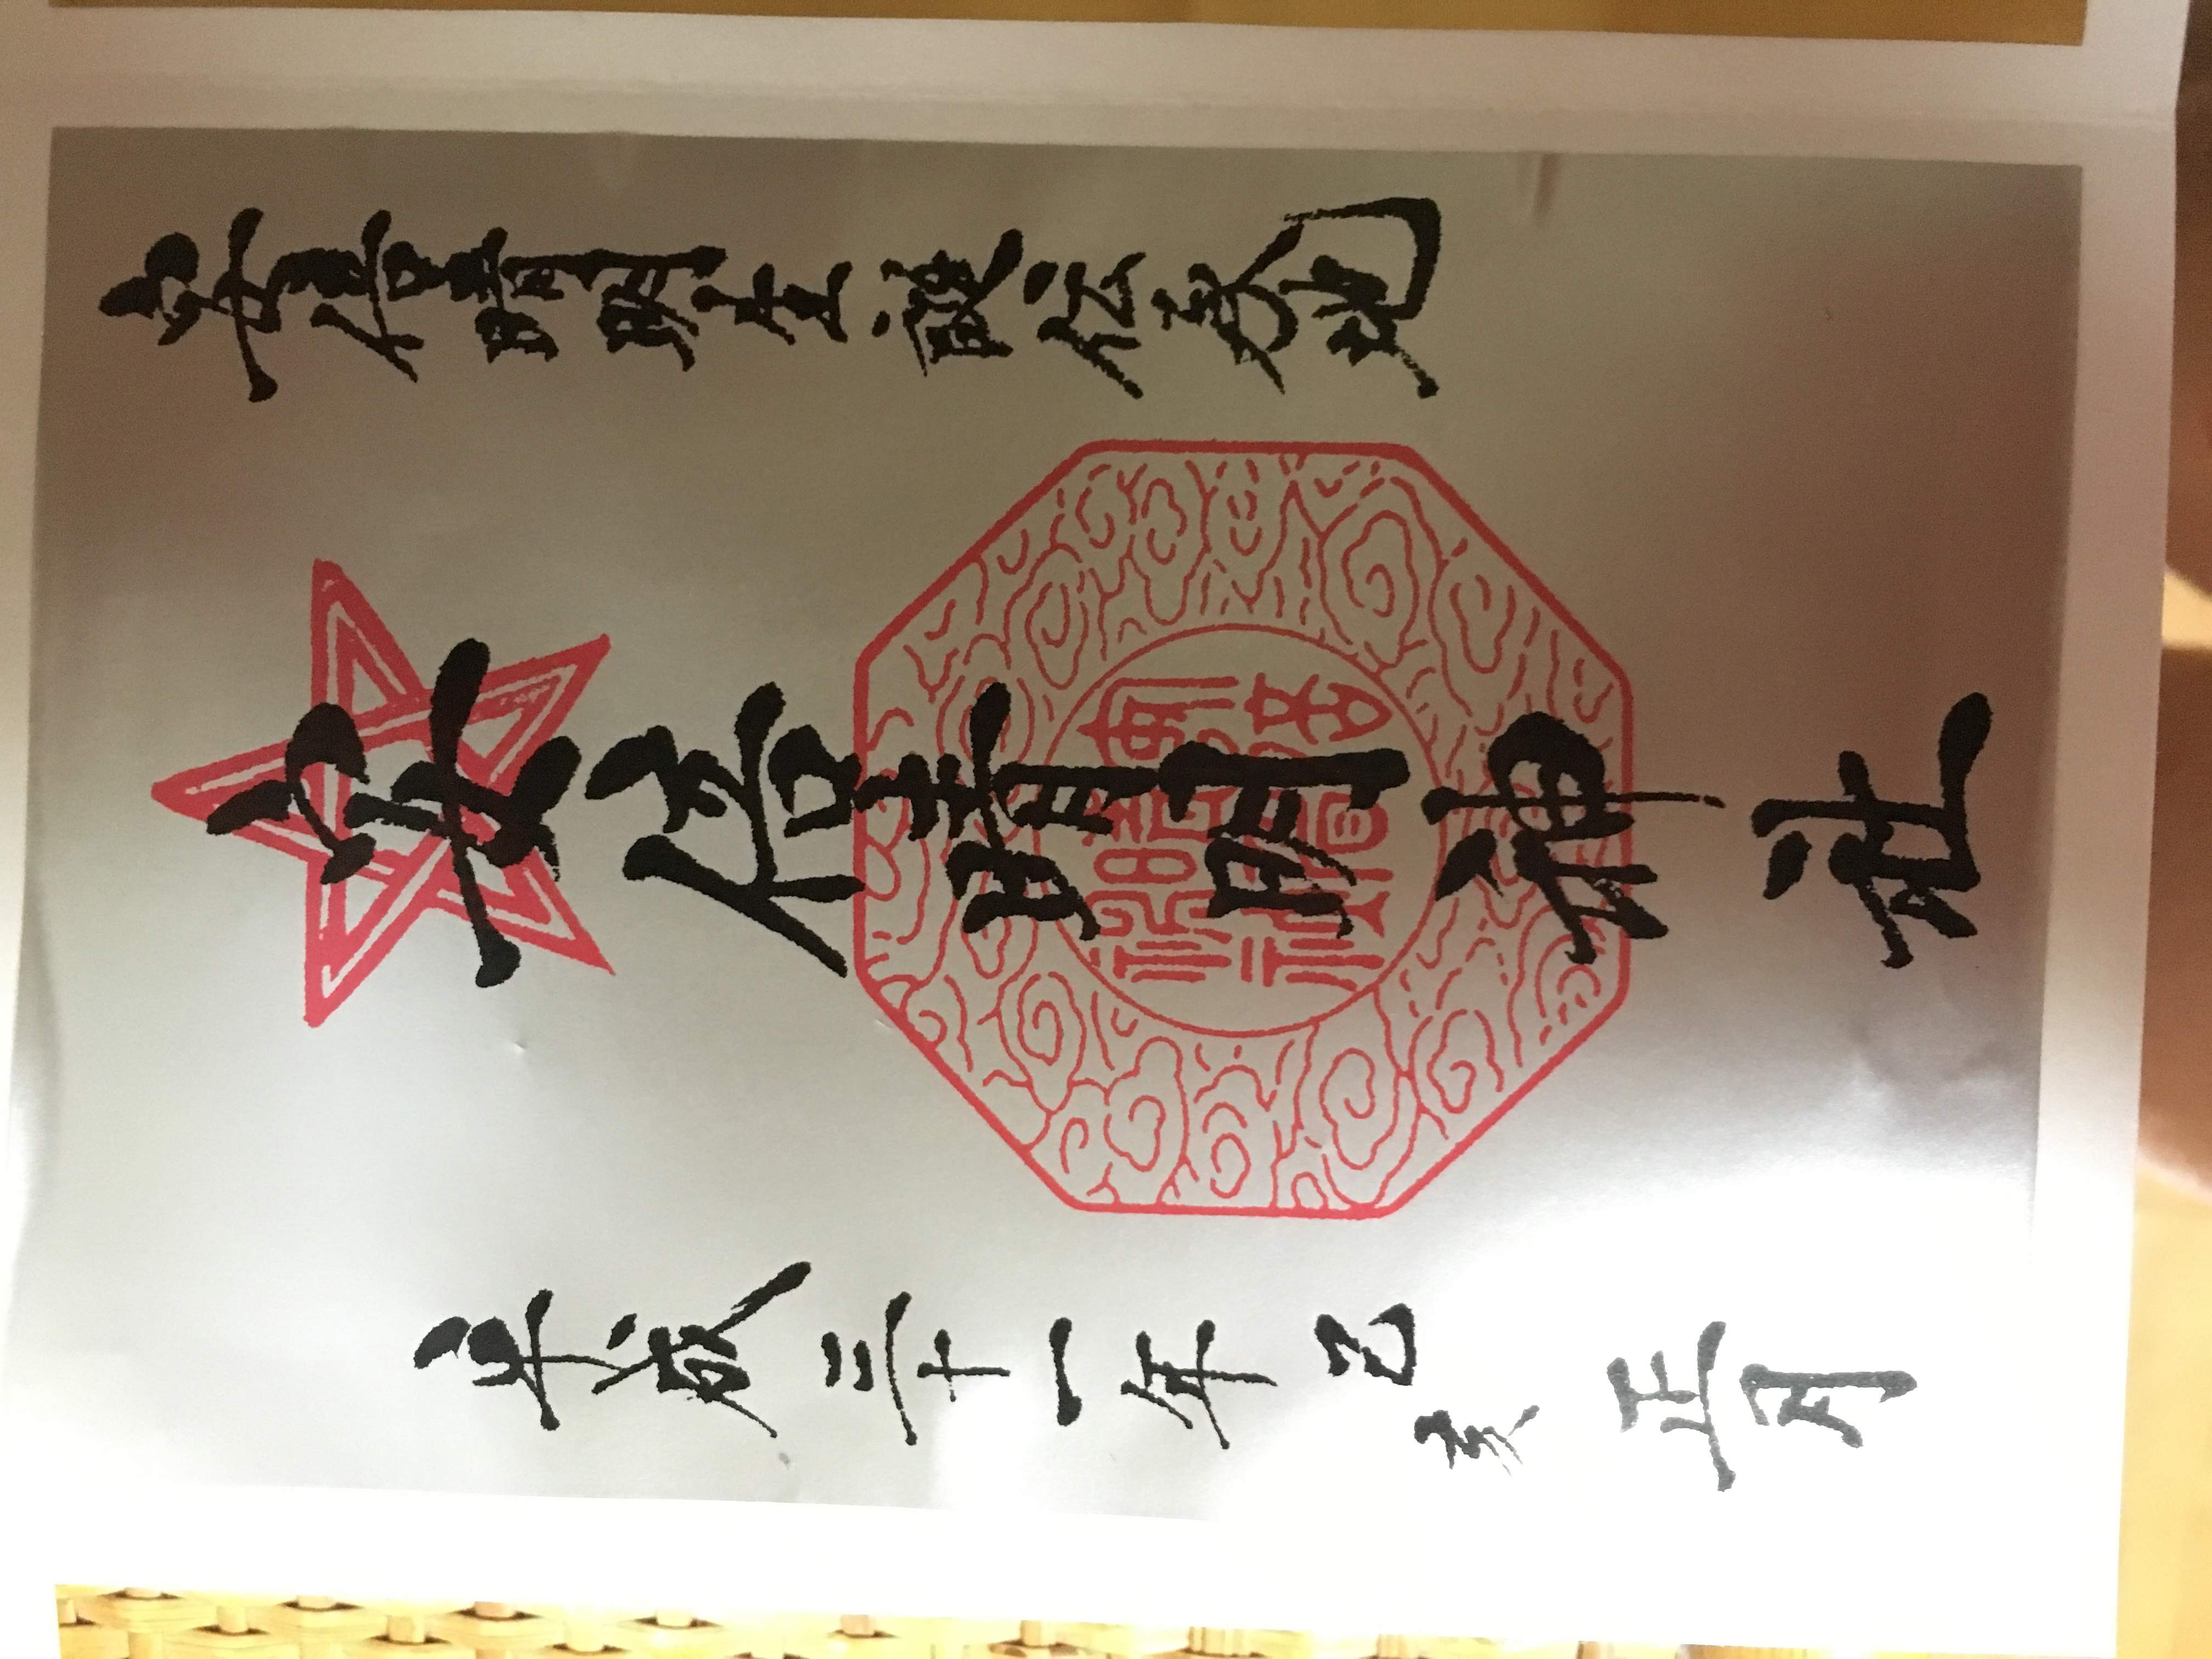 安倍晴明生誕伝承地
安倍晴明神社
平成三十一年己亥 正月